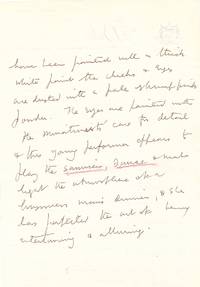 have been painted with a thick
white paint the cheeks & eyes
are dusted with a pale shrimp pink
powder. The eyes are painted with
the miniaturist's care to detail
& this young performer appears to
play the samisen, dance & make
light the atmosphere of a
business mens dinner, & she
has perfected the art of being
entertaining & alluring.